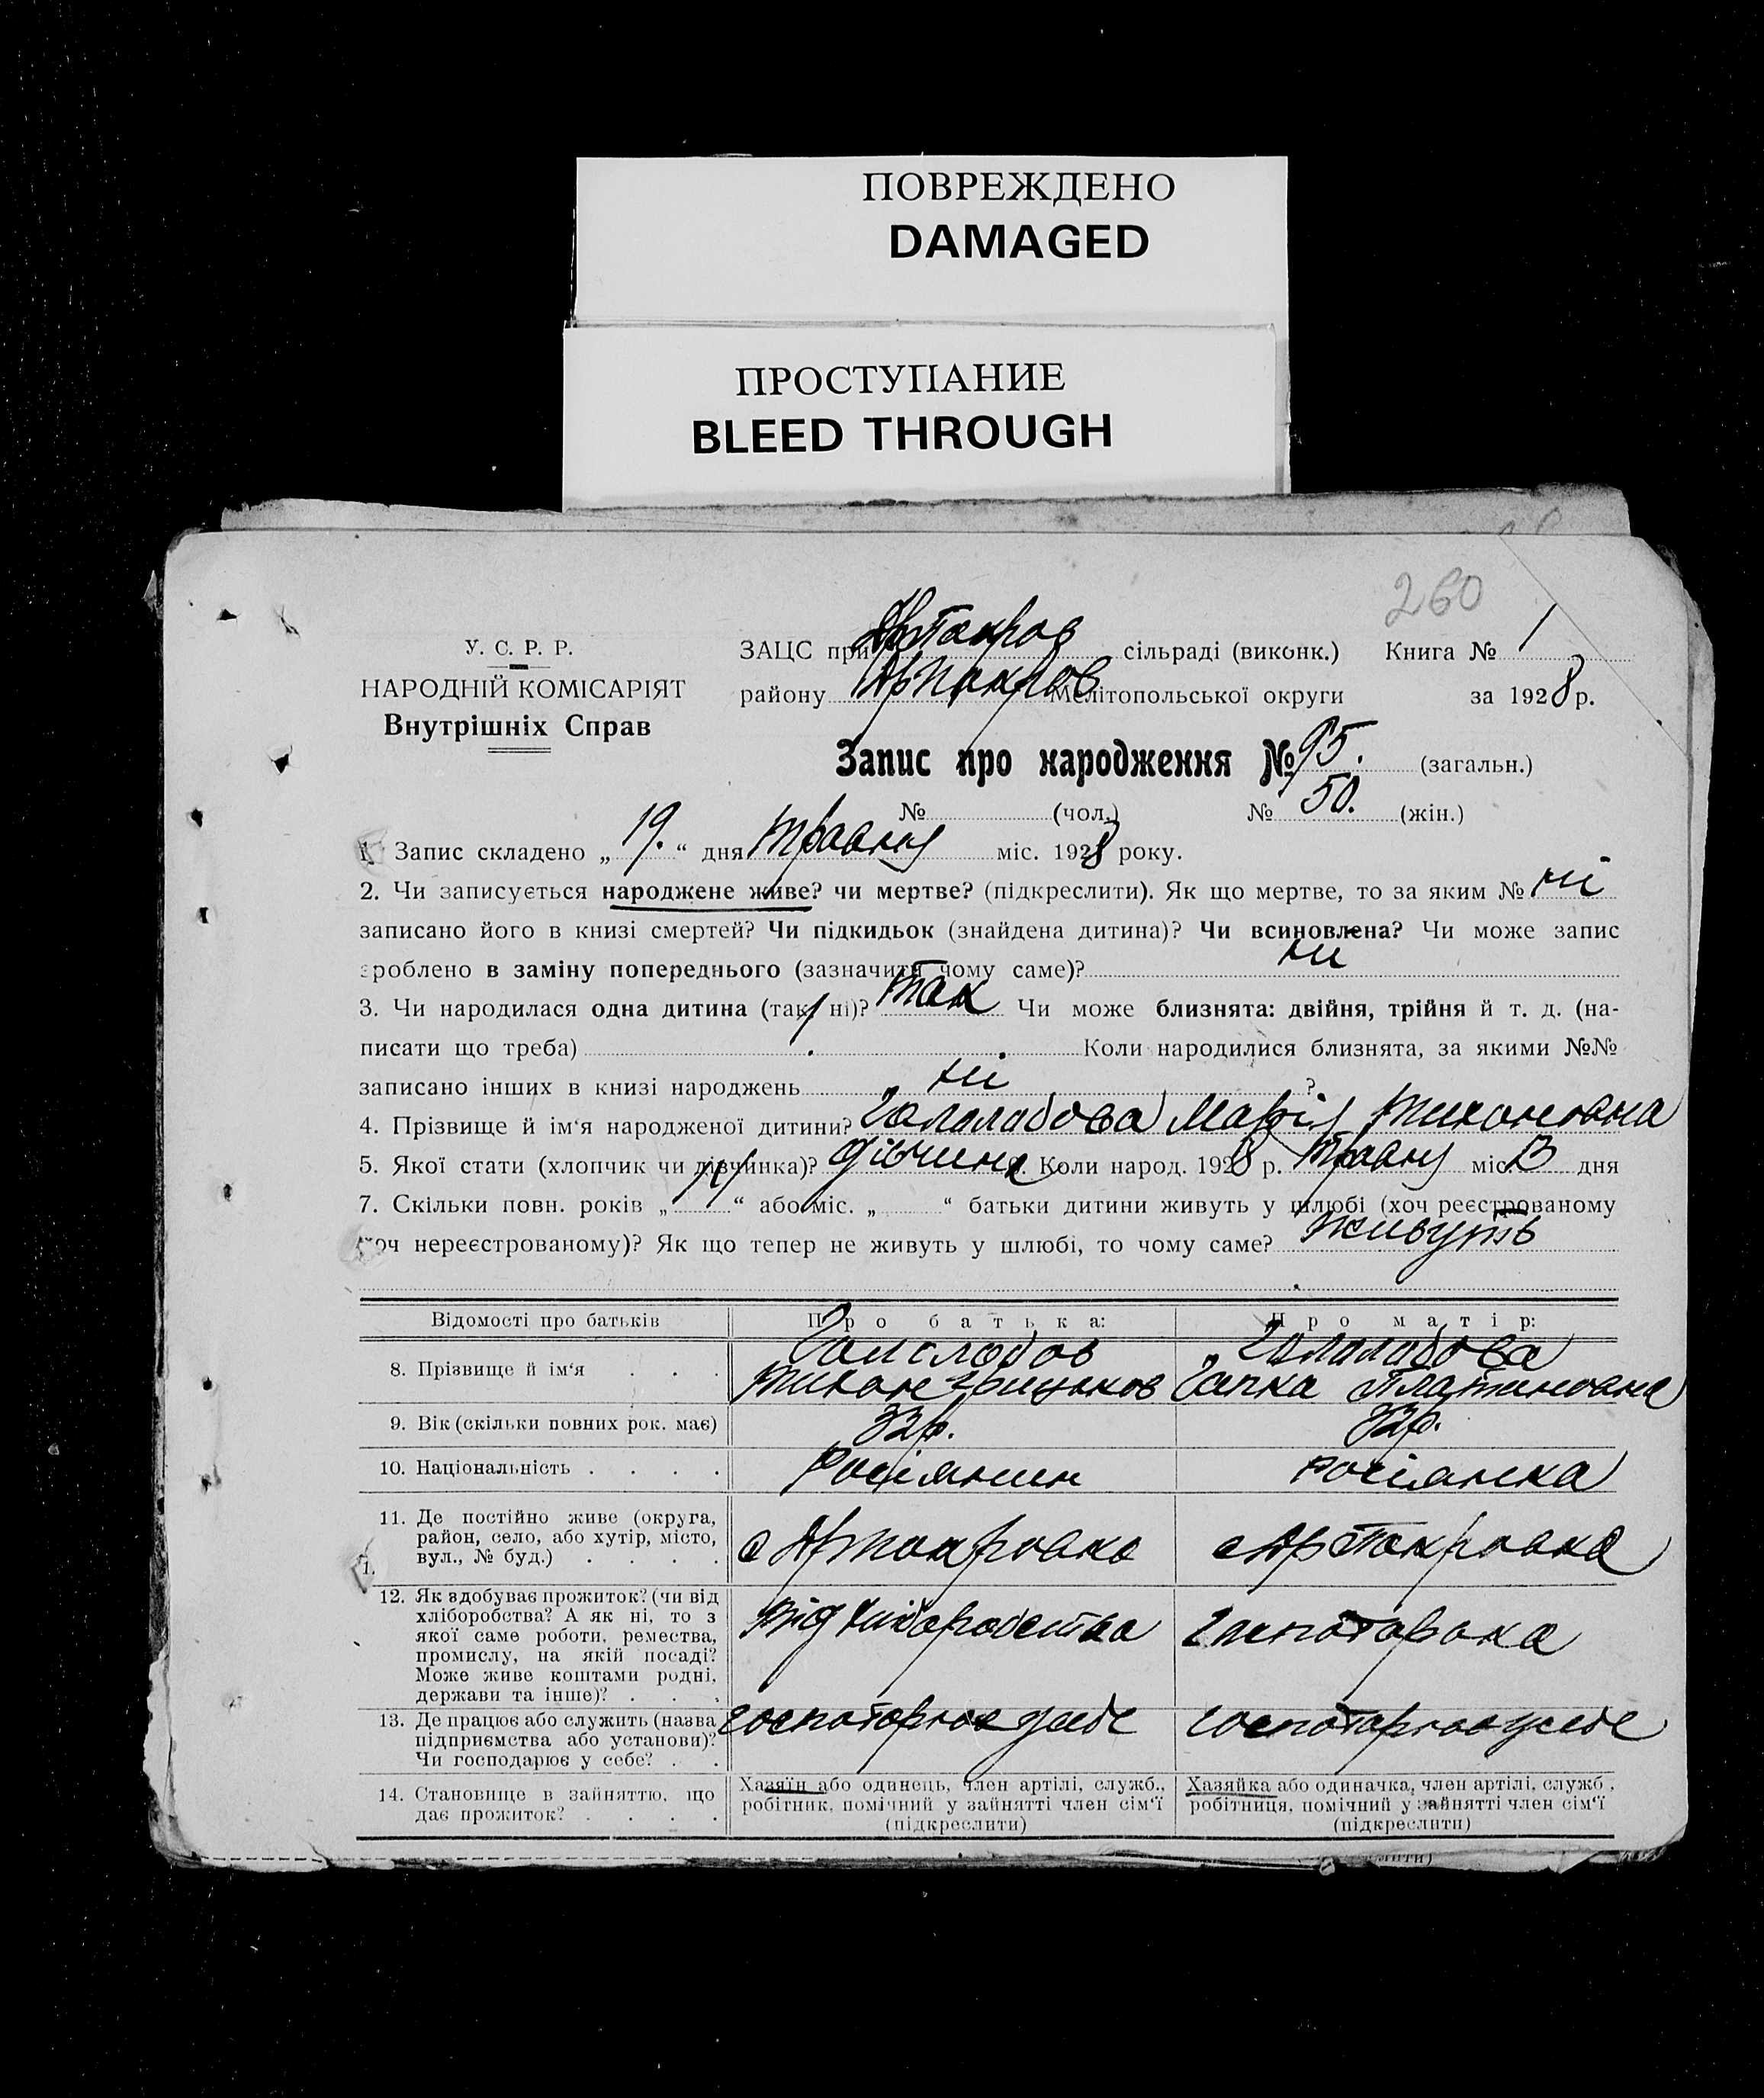 ПОВРЕЖДЕНО
DAMAGED
ПРОСТУПАНИЕ
BLEED THROUGH
260
У. С. Р. Р.
НАРОДНІЙ КОМІСАРІЯТ
Внутрішніх Справ
ЗАЦС при сільраді (виконк.) Книга № 1
району Мелітопольської округи за 1928 р.
Запис про народження № 95. (загальн.)
№ (чол.) № 50. (жін.)
1. Запис складено „ 19. “ дня травня міс. 1928 року.
2. Чи записується народжене живе? чи мертве? (підкреслити). Як що мертве, то за яким № ні
записано його в книзі смертей? Чи підкидьок (знайдена дитина)? Чи всиновлена? Чи може запис
зроблено в заміну попереднього (зазначити чому саме)? ні
3. Чи народилася одна дитина (так, ні)? так Чи може близнята: двійня, трійня й т. д. (на-
писати що треба) Коли народилися близнята, за якими №№
записано інших в книзі народжень ні ?
4. Прізвище й ім‘я народженої дитини? Марія Тихоновна
5. Якої стати (хлопчик чи дівчинка)? дівчина 6. Коли народ. 1928 р. травня міс. дня
7. Скільки повн. років „ “ або міс. „ “ батьки дитини живуть у шлюбі (хоч реєстрованому
хоч нереєстрованому)? Як що тепер не живуть у шлюбі, то чому саме? живуть
Відомості про батьків Про батька: Про матір:
8. Прізвище й ім‘я . . .
Тихон Грицьков Гапка
9. Вік (скільки повних рок. має) 32р. 32р.
10. Національність . . . . росіянин росіянка
11. Де постійно живе (округа,
район, село, або хутір, місто,
вул., № буд.) . . . .
с Артпокровка с Артпокровка
12. Як здобуває прожиток? (чи від
хліборобства? А як ні, то з
якої саме роботи, ремества,
промислу, на якій посаді?
Може живе коштами родні,
держави та інше)? . . .
від хліборобства
13. Де працює або служить (назва
підприємства або установи)?
Чи господарює у себе? . .
14. Становище в зайняттю, що
дає прожиток? . . . .
Хазяїн або одинець, член артілі, служб.,
робітник, помічний у зайнятті член сім‘ї
(підкреслити)
Хазяйка або одиначка, член артілі, служб.,
робітниця, помічний у зайнятті член сім‘ї
(підкреслити)